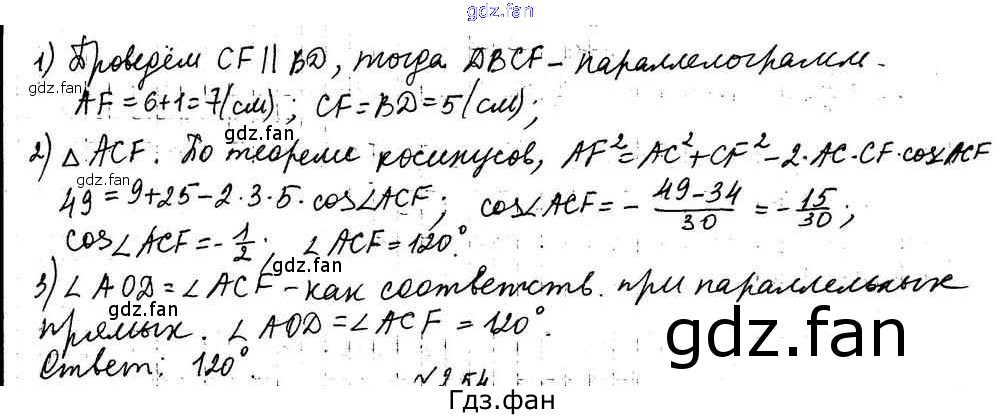 gdz.fan
1) Проведём CF || BD, тогда DBCF – параллелограмм.
gdz.fan
AF = 6+1 = 7 (см); CF = BD = 5 (см);
gdz.fan
2) △ ACF. По теореме косинусов, AF² = AC² + CF² – 2·AC·CF·cos ACF
gdz.fan
49 = 9+25 – 2·3·5·cos∠ACF; cos∠ACF = – (49–34)/30 = – 15/30;
cos∠ACF = – 1/2; ∠ACF = 120°.
gdz.fan
3) ∠AOD = ∠ACF – как соответств. при параллельных
gdz.fan
прямых. ∠AOD = ∠ACF = 120°.
gdz.fan
Ответ: 120°.
gdz.fan
№254
Гдз.фан